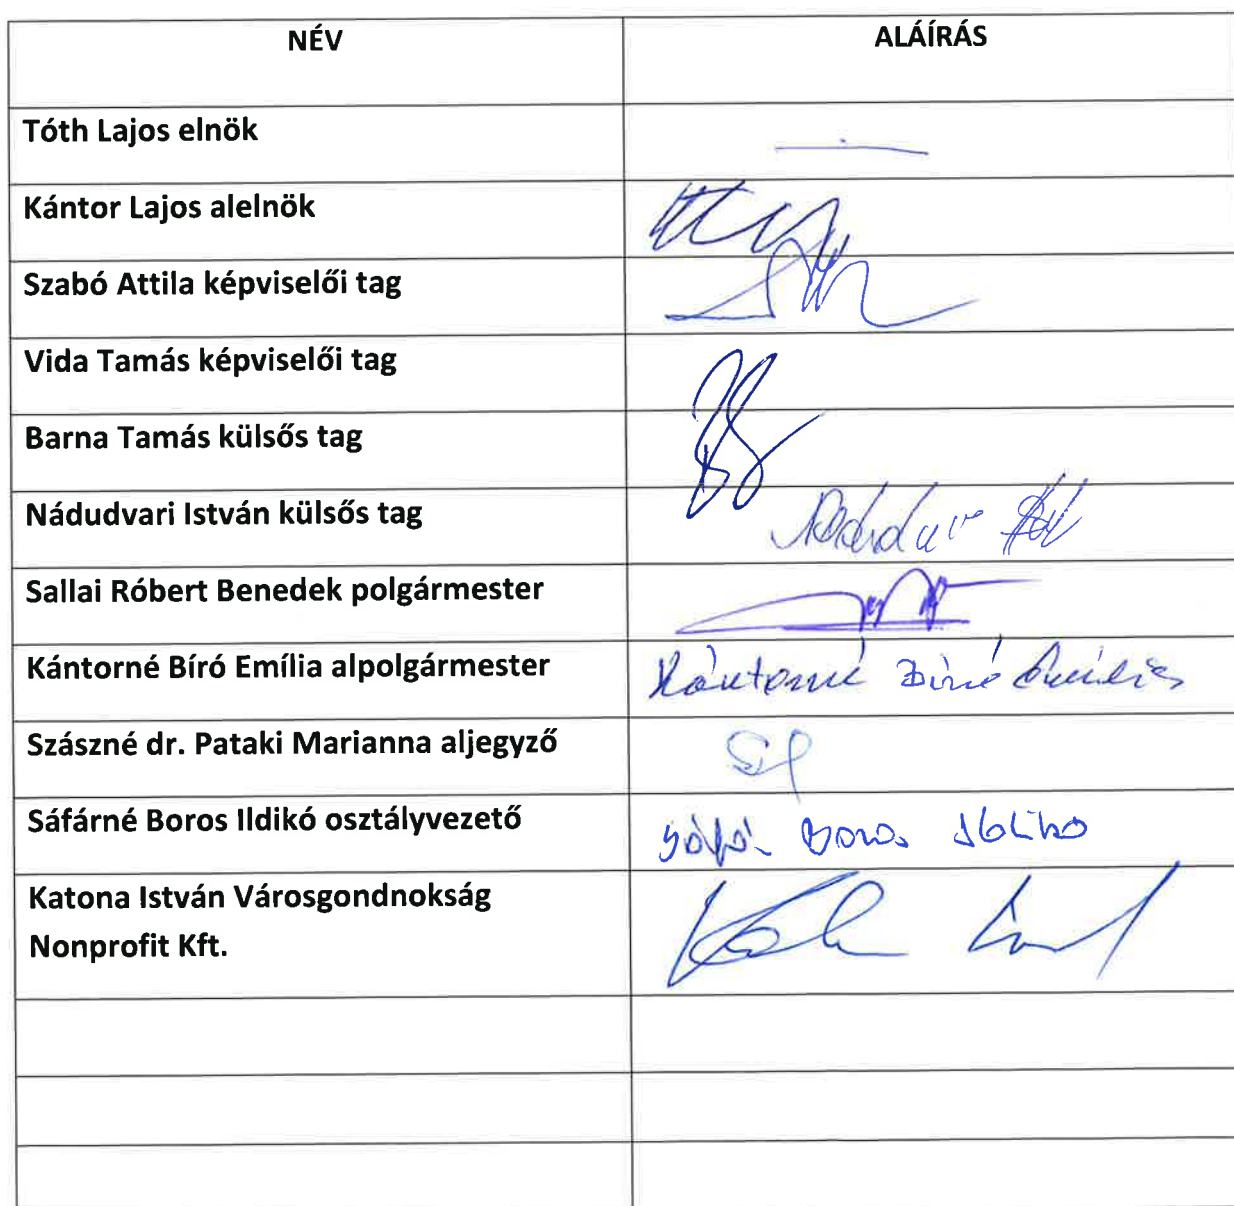 NÉV ALÁÍRÁS
Tóth Lajos elnök
Kántor Lajos alelnök
Szabó Attila képviselői tag
Vida Tamás képviselői tag
Barna Tamás külsős tag
Nádudvari István külsős tag
Sallai Róbert Benedek polgármester
Kántorné Bíró Emília alpolgármester Kántorné Bíró Emília
Szászné dr. Pataki Marianna aljegyző
Sáfárné Boros Ildikó osztályvezető Boros Ildikó
Katona István Városgondnokság
Nonprofit Kft.